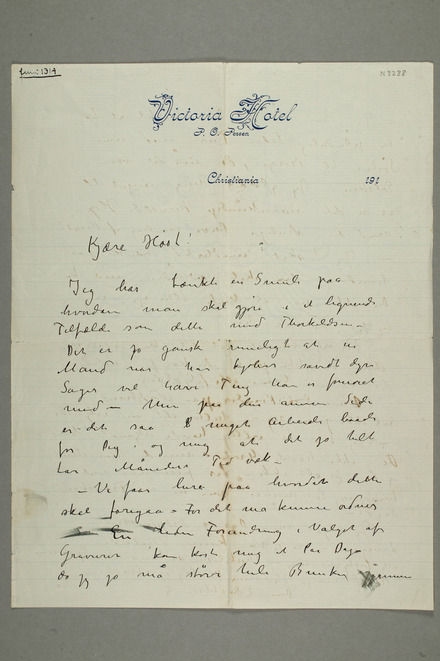 Juni 1914
N3238
Victoria Hotel
P. O. Persen
Christiania 191
Kjære Høst!
Jeg har tænkt en Smule paa
hvordan man skal gjøre i et lignende
Tilfælde som dette med Thorkildsen –
Det er jo ganske rimeligt at en
Mand naar han kjøber saadt dyre
Sager vil have Ting han er fornøiet
med – Men paa den anden Side
er det saa meget Arbeide baade
for Dig og mig at det jo helt
tar Maaneders Tid væk –
– Vi faar lure paa hvordan dette
skal foregaa – For det maa kunne ordnes
En liden Forandring i Valget af
Gravurer kan koste mig et Par Dage
da jeg jo må støve hele Bunken igjennem